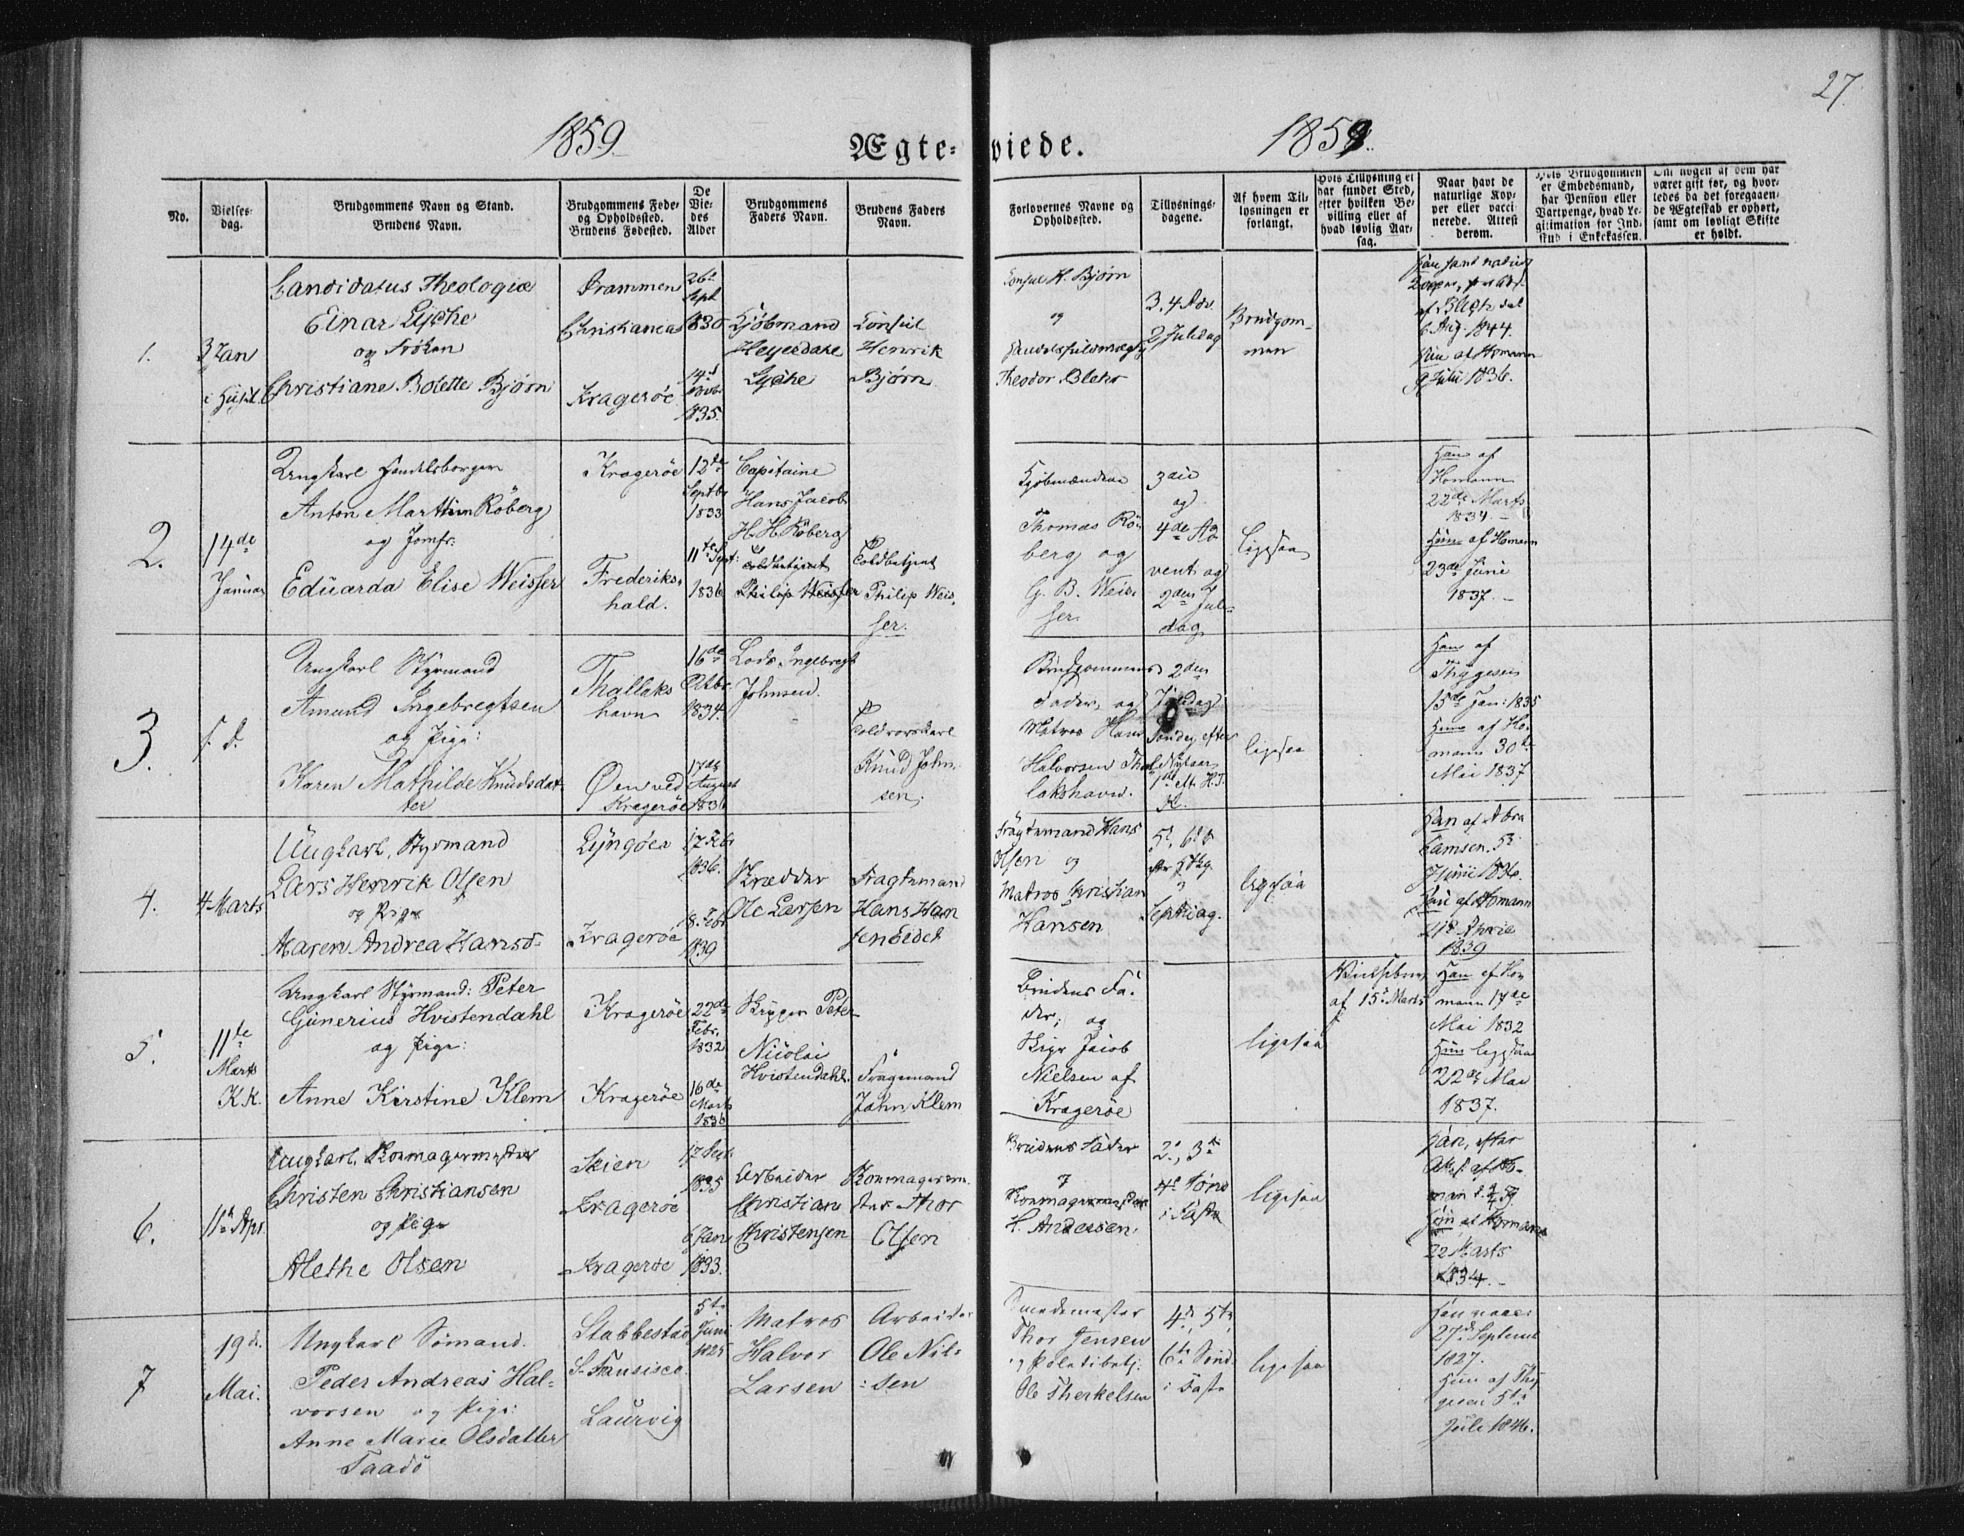 27.
1859.
Ægte=viede.
1859.
No.
Vielses-
dag.
Brudgommens Navn og Stand.
Brudens Navn.
Brudgommens Føde-
og Opholdssted.
Brudens Fødested.
De
Vie-
des
Alder
Brudgommens
Faders Navn.
Brudens Faders
Navn.
Forlovernes Navne og
Opholdssted.
Tillysnings-
dagene.
Af hvem Til-
lysningen er
forlangt.
Hvis Tillysning ei
har fundet Sted,
efter hvilken Be-
villing eller af
hvad lovlig Aar-
sag.
Naar havt de
naturlige Kop-
per eller vacci-
nerede. Attest
derom.
Hvis Brudgommen
er Embedsmand,
har Pension eller
Vartpenge, hvad Le-
gitimation for Ind-
skud i Enkekassen.
Om nogen af dem har
været gift før, og hvor-
ledes da det foregaaen-
de Ægteskab er ophørt,
samt om lovligt Skifte
er holdt.
1.
3 Jan
Candidatus Theologiæ
Einar Lyche
og Frøken
Christiane Bolette Bjørn
Drammen
Christiania
Kragerøe
26de
Sept
1830
14d
1835.
Kjöbmand
Heyerdahl
Lyche
Consul
Henrik
Bjørn
Consul H. Bjørn
og
Theodor Blehr
3. 4 Adv.
2 Juledag
Brudgom-
men
6 Aug. 1844.
Hun af Homann
9 Juli 1836.
2.
14de
Januar
Ungkarl Handelsborger
Anton Marthin Röberg
og Jomfr:
Eduarda Elise Weisser
Kragerøe
Frederiks-
hald.
12de
Septbr
1833
11te Sept:
1836
Capitaine
Hans Jacob
H. H. Röberg
Toldbetjent
Philip Weisser
Toldbetjent
Philip Weis-
ser.
Kjöbmændene
Thomas Rö-
berg og
G. B. Weis-
ser
3die
og
4de Ad-
vent og
2den Jule-
dag
ligesaa
Han af
Homann
22de Marts
1834. —
Hun af Homann
23de Juni
1837. —
3.
f. d.
Ungkarl Styrmand
Amund Ingebregtsen
og Pige:
Karen Mathilde Knudsdat-
ter
Thallaks-
havn
Øen ved
Kragerøe
16de
Octbr.
1834.
17de
August
1836
Lods Ingebregt
Johnsen.
Toldroerskarl
Knud John-
sen.
Brudgommens
Fader, og
Matros Hans
Halvorsen Thal-
lakshavn.
2den
Juledag
Søndag efter
Nytaar
ligesaa
Han af
Thygesen
15de Jan: 1835
Hun af Ho-
mann 30te
Mai 1837
4.
4 Marts
Ungkarl, Styrmand
Lars Henrik Olsen
og Pige
Maren Andrea Hansd.
Lyngöer
Kragerøe
17 Febr
1836.
8. Febr
1839
Skrædder
Ole Larsen
Fragtemand
Hans Han
sen Eidet
Fragtemand Hans
Olsen og
Matros Kristian
Hansen
ligesaa
Han af Abra
hamsen. 5t
Juni 1836.
Hun af Homann
18 April
1839
5.
11te
Marts
K.K.
Ungkarl Styrmand: Peter
Günerius Hvistendahl
og Pige:
Anne Kirstine Klem
Kragerøe
Kragerøe
22de
Febr.
1832
16de
Marts
1836
Skipper Peter
Nicolai
Hvistendahl.
Fragtemand
John Klem
Brudens Fa-
der; og
Skipr Jacob
Nielsen af
Kragerøe
ligesaa
af 15d Marts
Han af Ho-
mann 17de
Mai 1832
Hun ligesaa
22de Mai
1837.
6.
11te Apr.
Ungkarl, Skomagermester
Christen Christiansen
og Pige
Alethe Olsen
Skien
Kragerøe
Kragerøe
1835
6 Jan
1833.
Arbeider
Christian
Christensen
Skomagerme
ster Thor
Olsen
Brudens Fader
Skomagermester
H. Andersen.
2d, 3de
4de Sønd
i Faste
ligesaa
Han, efter
Hun af Homann
22 Marts
1834. —
7
19de
Mai.
Ungkarl Sømand
Peder Andreas Hal-
vorsen og Pige:
Anne Marie Olsdatter
Taadö
Stabbestad
St. Fransisco.
Laurvig
5te
Juni
1825
Matros
Halvor
Larsen
Arbeider
Ole Nil-
sen
Smedemester
Thor Jensen
og Politibetj:
Ole Therkelsen
4de, 5te,
6te Sønd.
i Faste
ligesaa
27de September
1827.
Hun af Thy-
gesen 5te
Juli 1846.